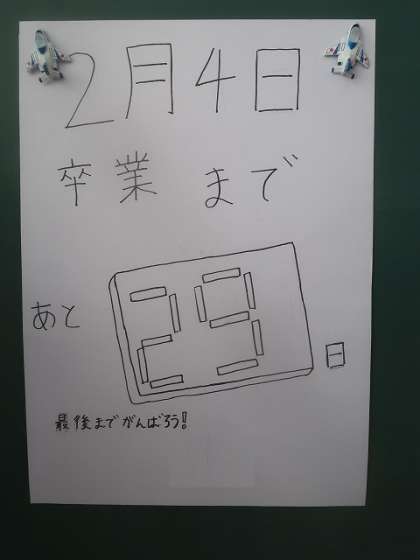 2月4日
卒業まで
あと 29 日
最後までがんばろう!